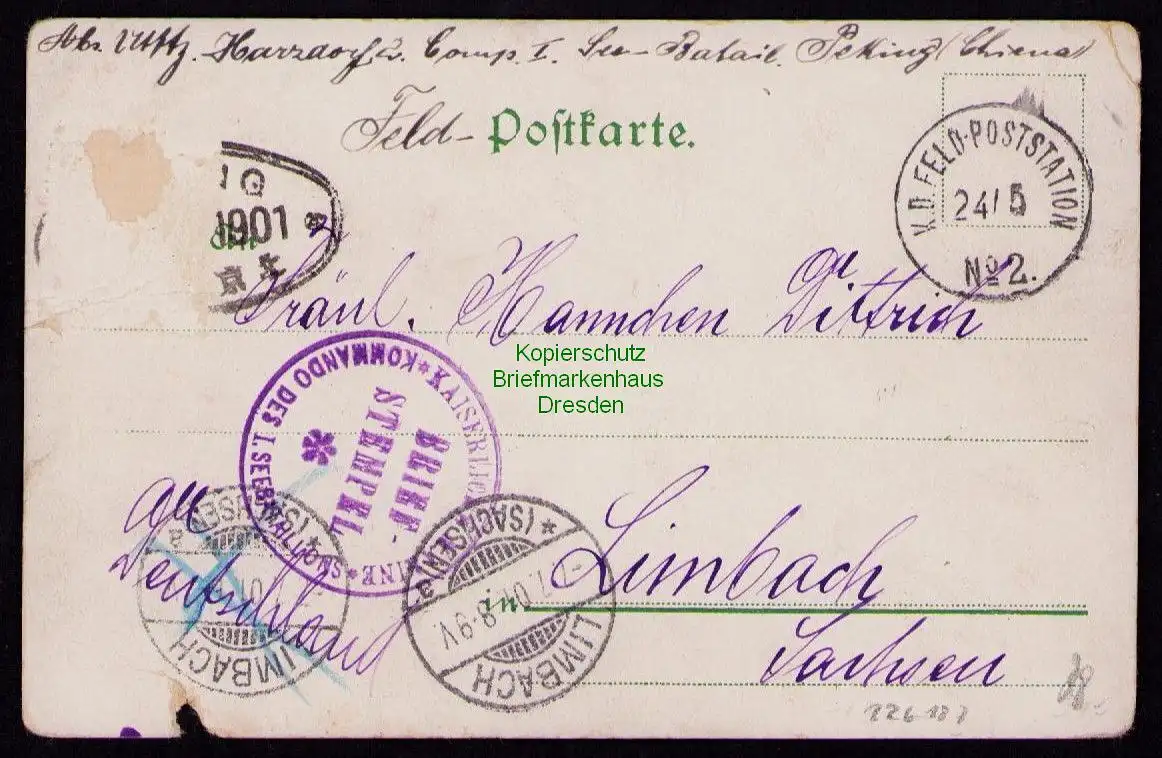 Abs. Uffz. Harzdorf 2. Comp. I. See-Batail. Peking (China)
Feld-Postkarte.
K.D. FELD-POSTSTATION
24/5
No 2.
IQ
1901
a
An
Fräul. Hannchen Dittrich
Kopierschutz
Briefmarkenhaus
Dresden
KAISERLICHE MARINE * KOMMANDO DES I. SEEBATAILLONS *
BRIEF-
STEMPEL
LIMBACH
(SACHSEN) a
7. 01. 8-9 V.
LIMBACH
(SACHSEN) a
01
aus
Deutschland
in Limbach
Sachsen